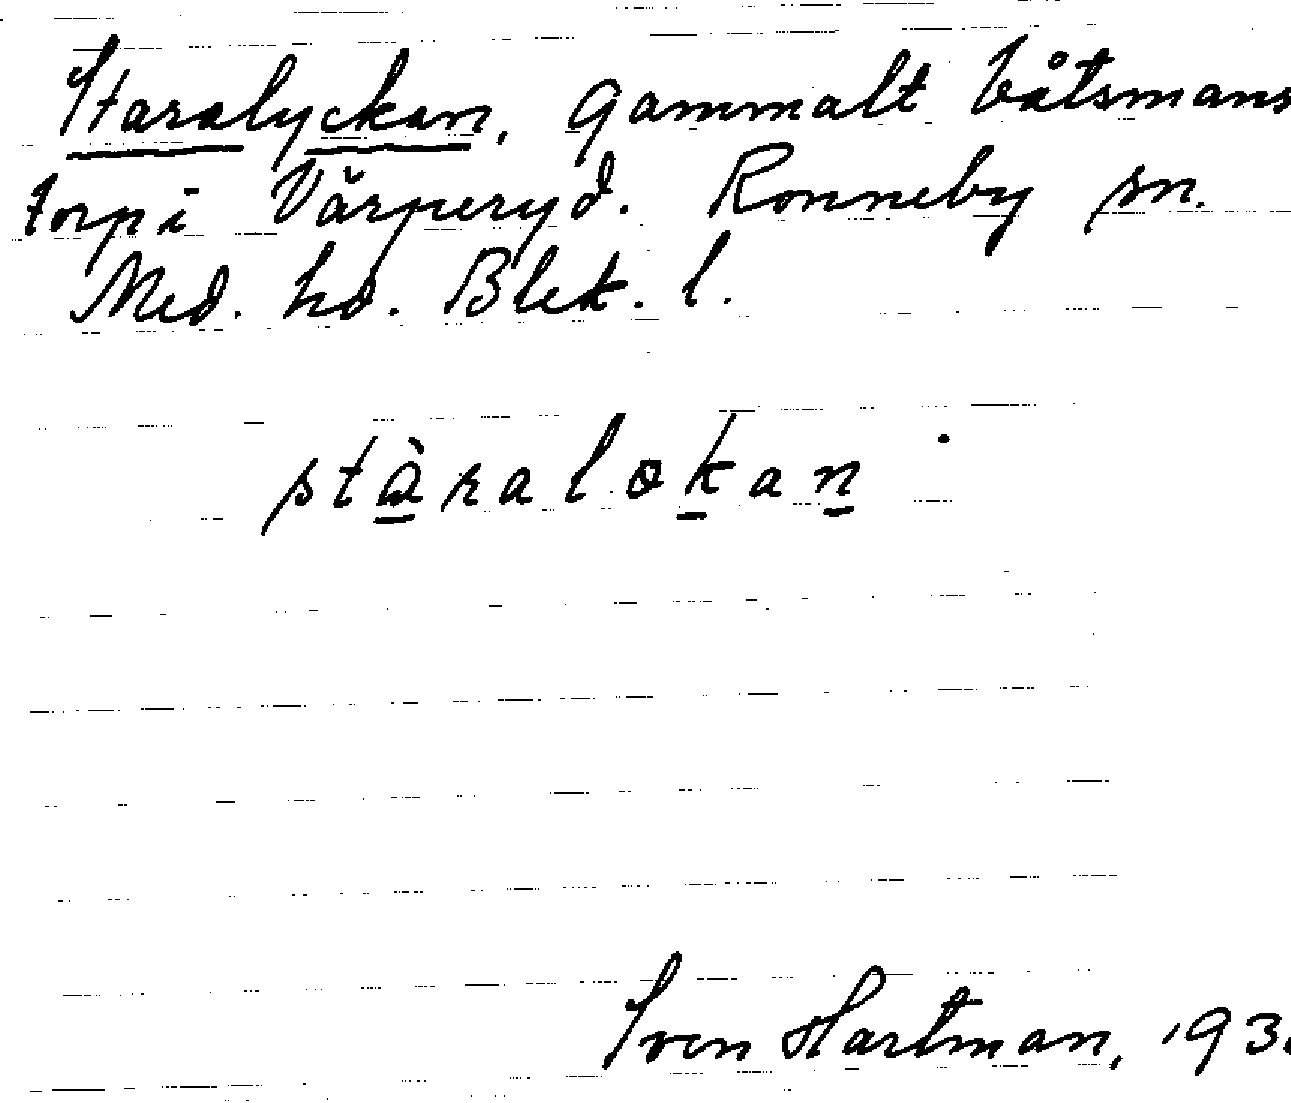 Staralyckan, Gammalt båtsmans
torp i Värperyd. Ronneby sn.
Med. hd. Blek. l.
stàralokan
Sven Hartman, 193